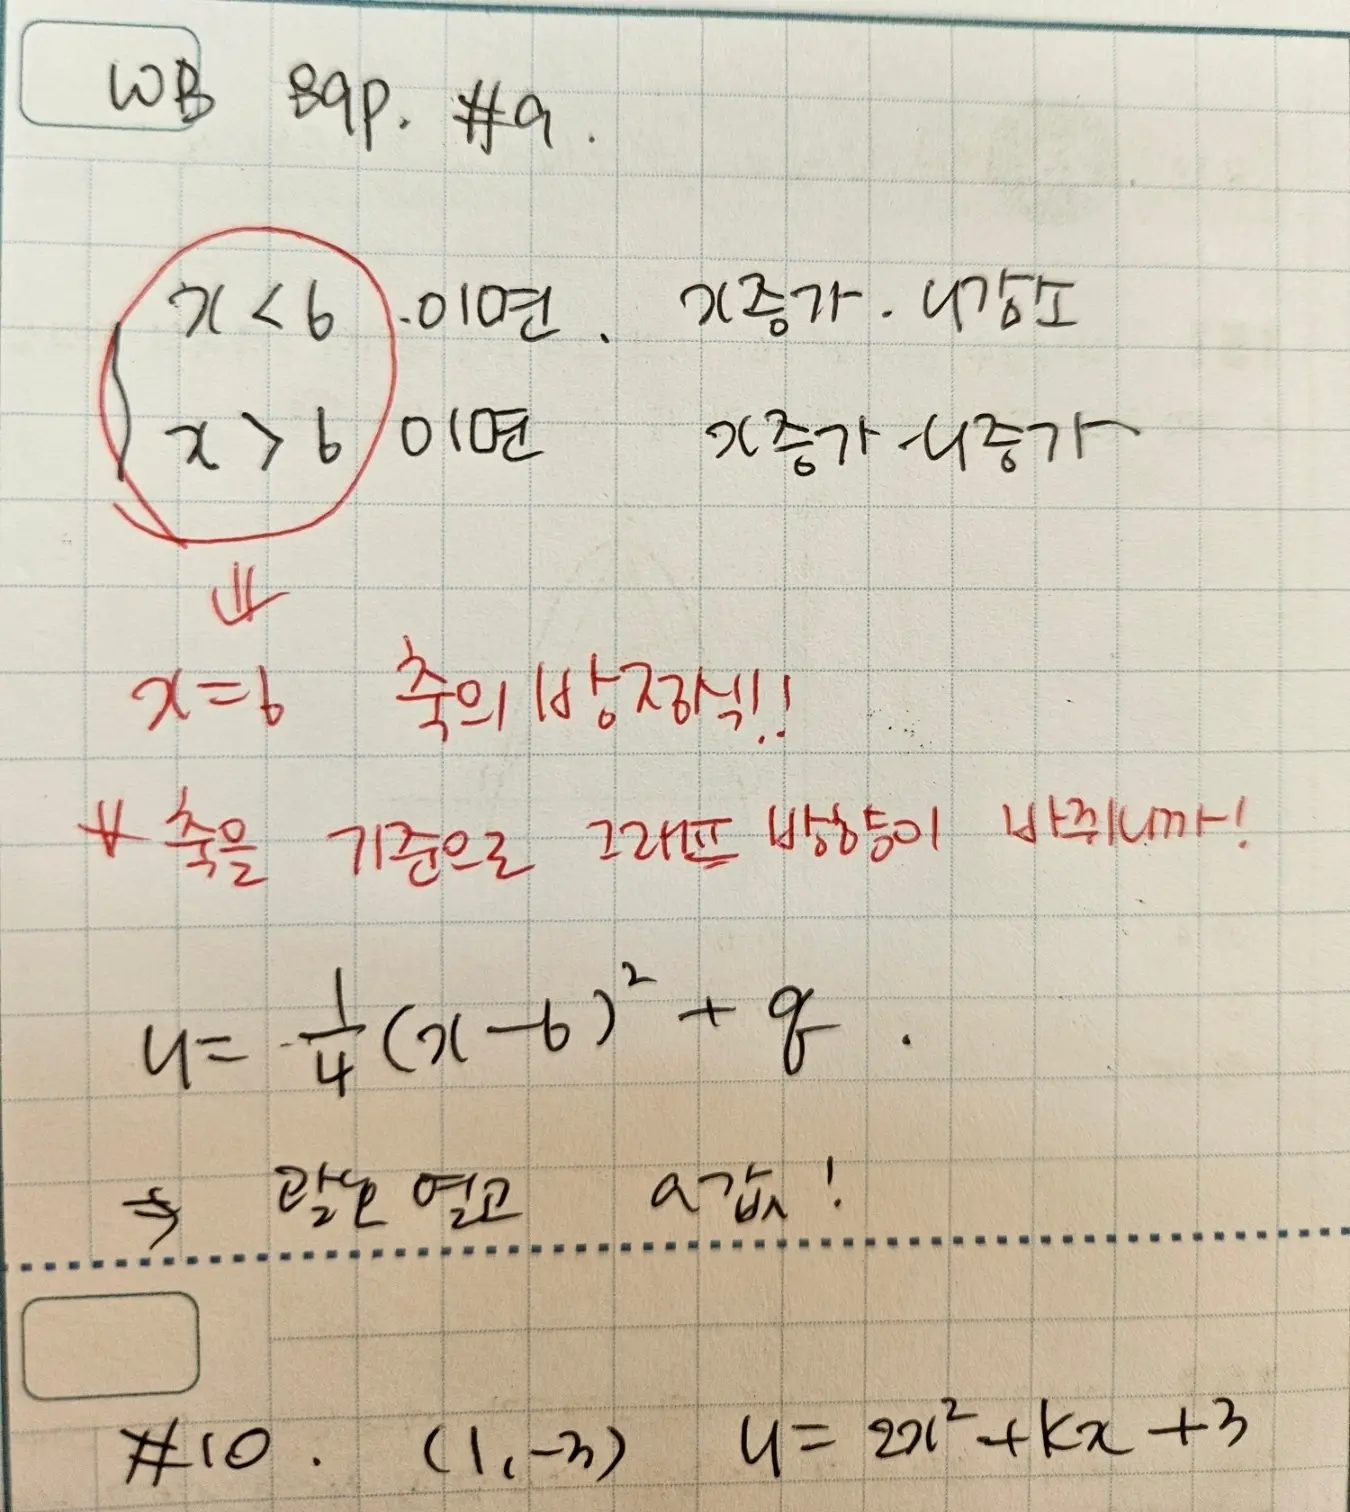 WB 89p. #9.
x < 6 이면. x증가. y감소
x > 6 이면 x증가 y증가
⇓
x=6 축의 방정식!!
축을 기준으로 그래프 방향이 바뀌니까!
y = 1/4(x-6)² + q.
⇒ 열고 a값!
#10. (1,-3) y = 2x²+kx+3